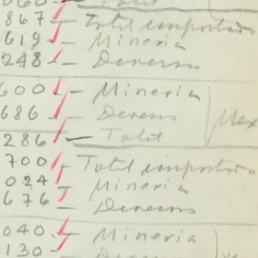 060 - Total
867 - Total importado
619 - Mineria
248 - Diversos
600 - Mineria
686 - Diversos
286 - Total
700 - Total importado
024 - Mineria
676 - Diversos
040 - Mineria
130 -